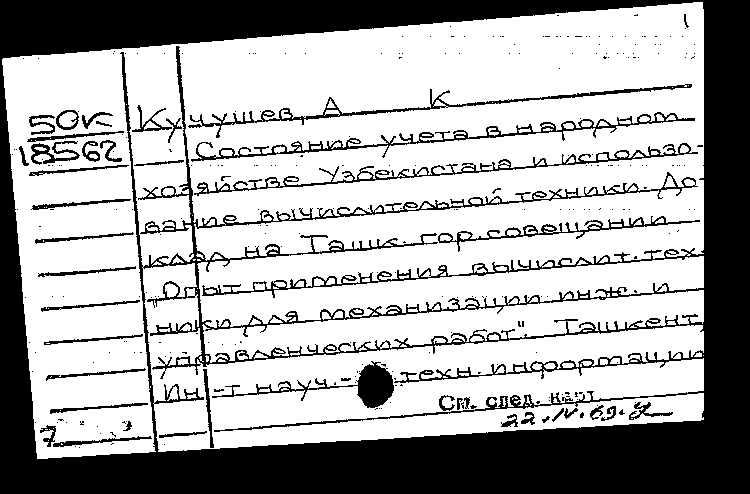 50к
18562
Кучушев, А К
Состояние учета в народном
хозяйстве Узбекистана и использо-
вание вычислительной техники. До-
клад на Ташк. гор. совещании
„Опыт применения вычислит. тех-
ники для механизации инж. и
управленческих работ". Ташкент,
Ин-т науч.- техн. информации
См. след. карт.
22.IV.69.
7